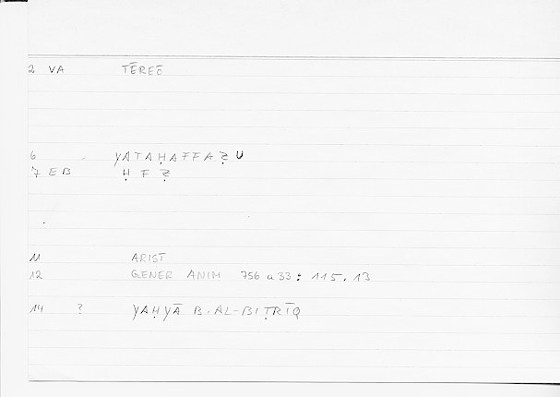 2 VA TĒREĒ
6 YATAḤAFFAẒU
7 EB Ḥ F Ẓ
11 ARIST
12 GENER ANIM 756 a 33 : 115, 13
14 ? YAḤYĀ B. AL-BIṬRĪQ